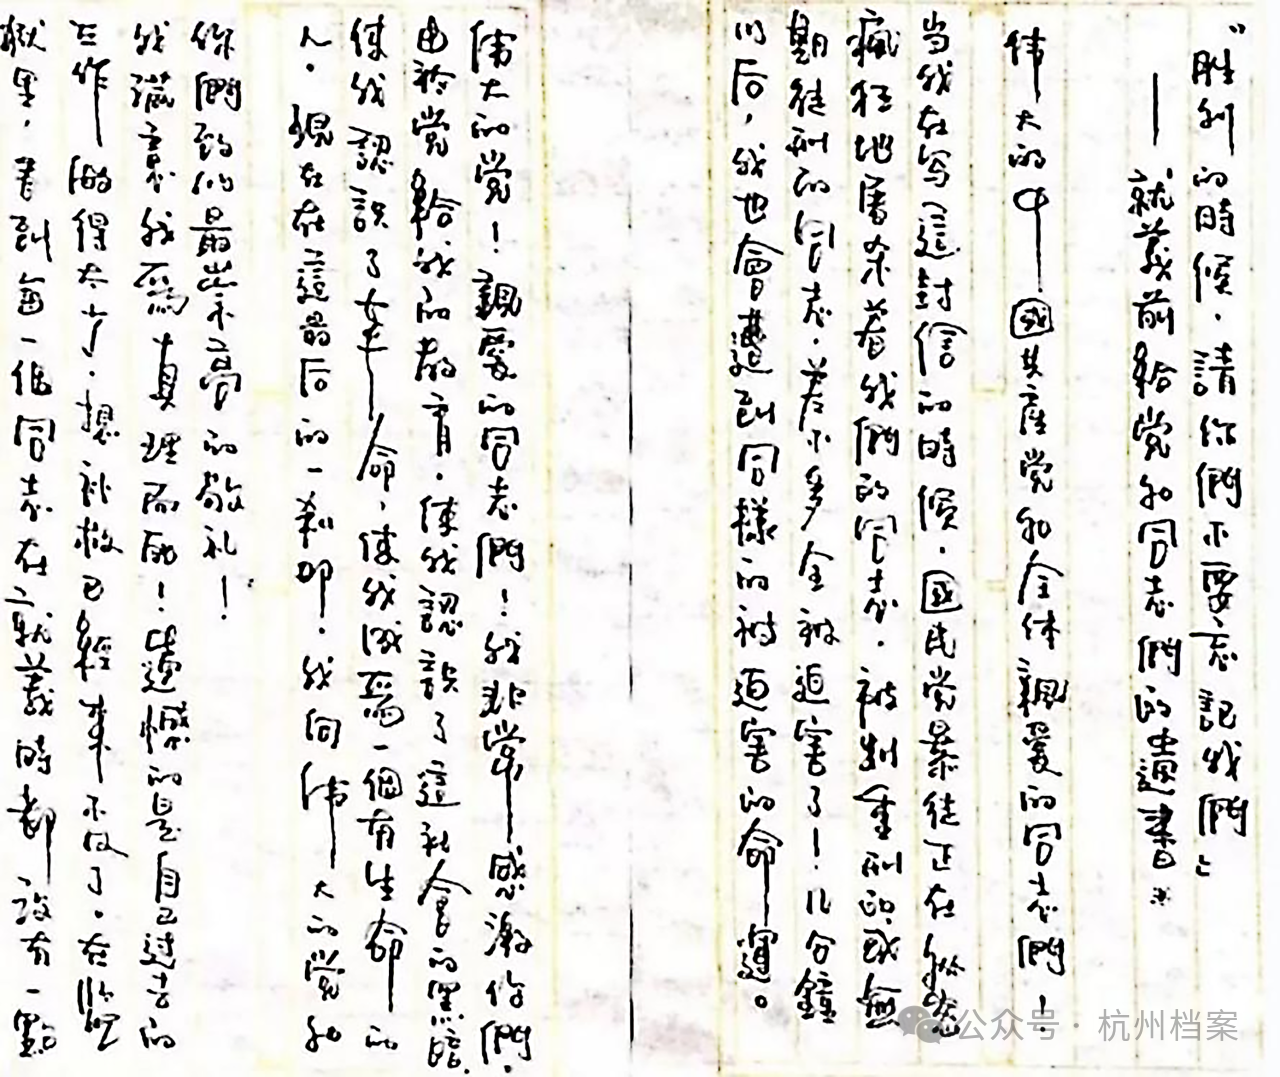 “胜利的時候，請你們不要忘記我們」
——就義前給党和同志們的遺書*
伟大的中國共産党和全体親爱的同志們！
当我在写這封信的時候，國民党暴徒正在秘密
瘋狂地屠杀着我們的同志，被判重刑的或無
期徒刑的同志，差不多全被迫害了！几分鐘
以后，我也會遭到同樣的被迫害的命運。
偉大的党！親爱的同志們！我非常感激你們，
由於党給我的教育，使我認識了這社會的黑暗，
使我認識了革命，使我成爲一個有生命的
人。現在在這最后的一刹那，我向伟大的党和
你們致以最崇高的敬礼！
我滿意我爲真理而死！遺憾的是自己过去的
工作做得太少，想补救已經来不及了。在監
獄里，看到每一個同志在就義時都没有一點
公众号·杭州档案